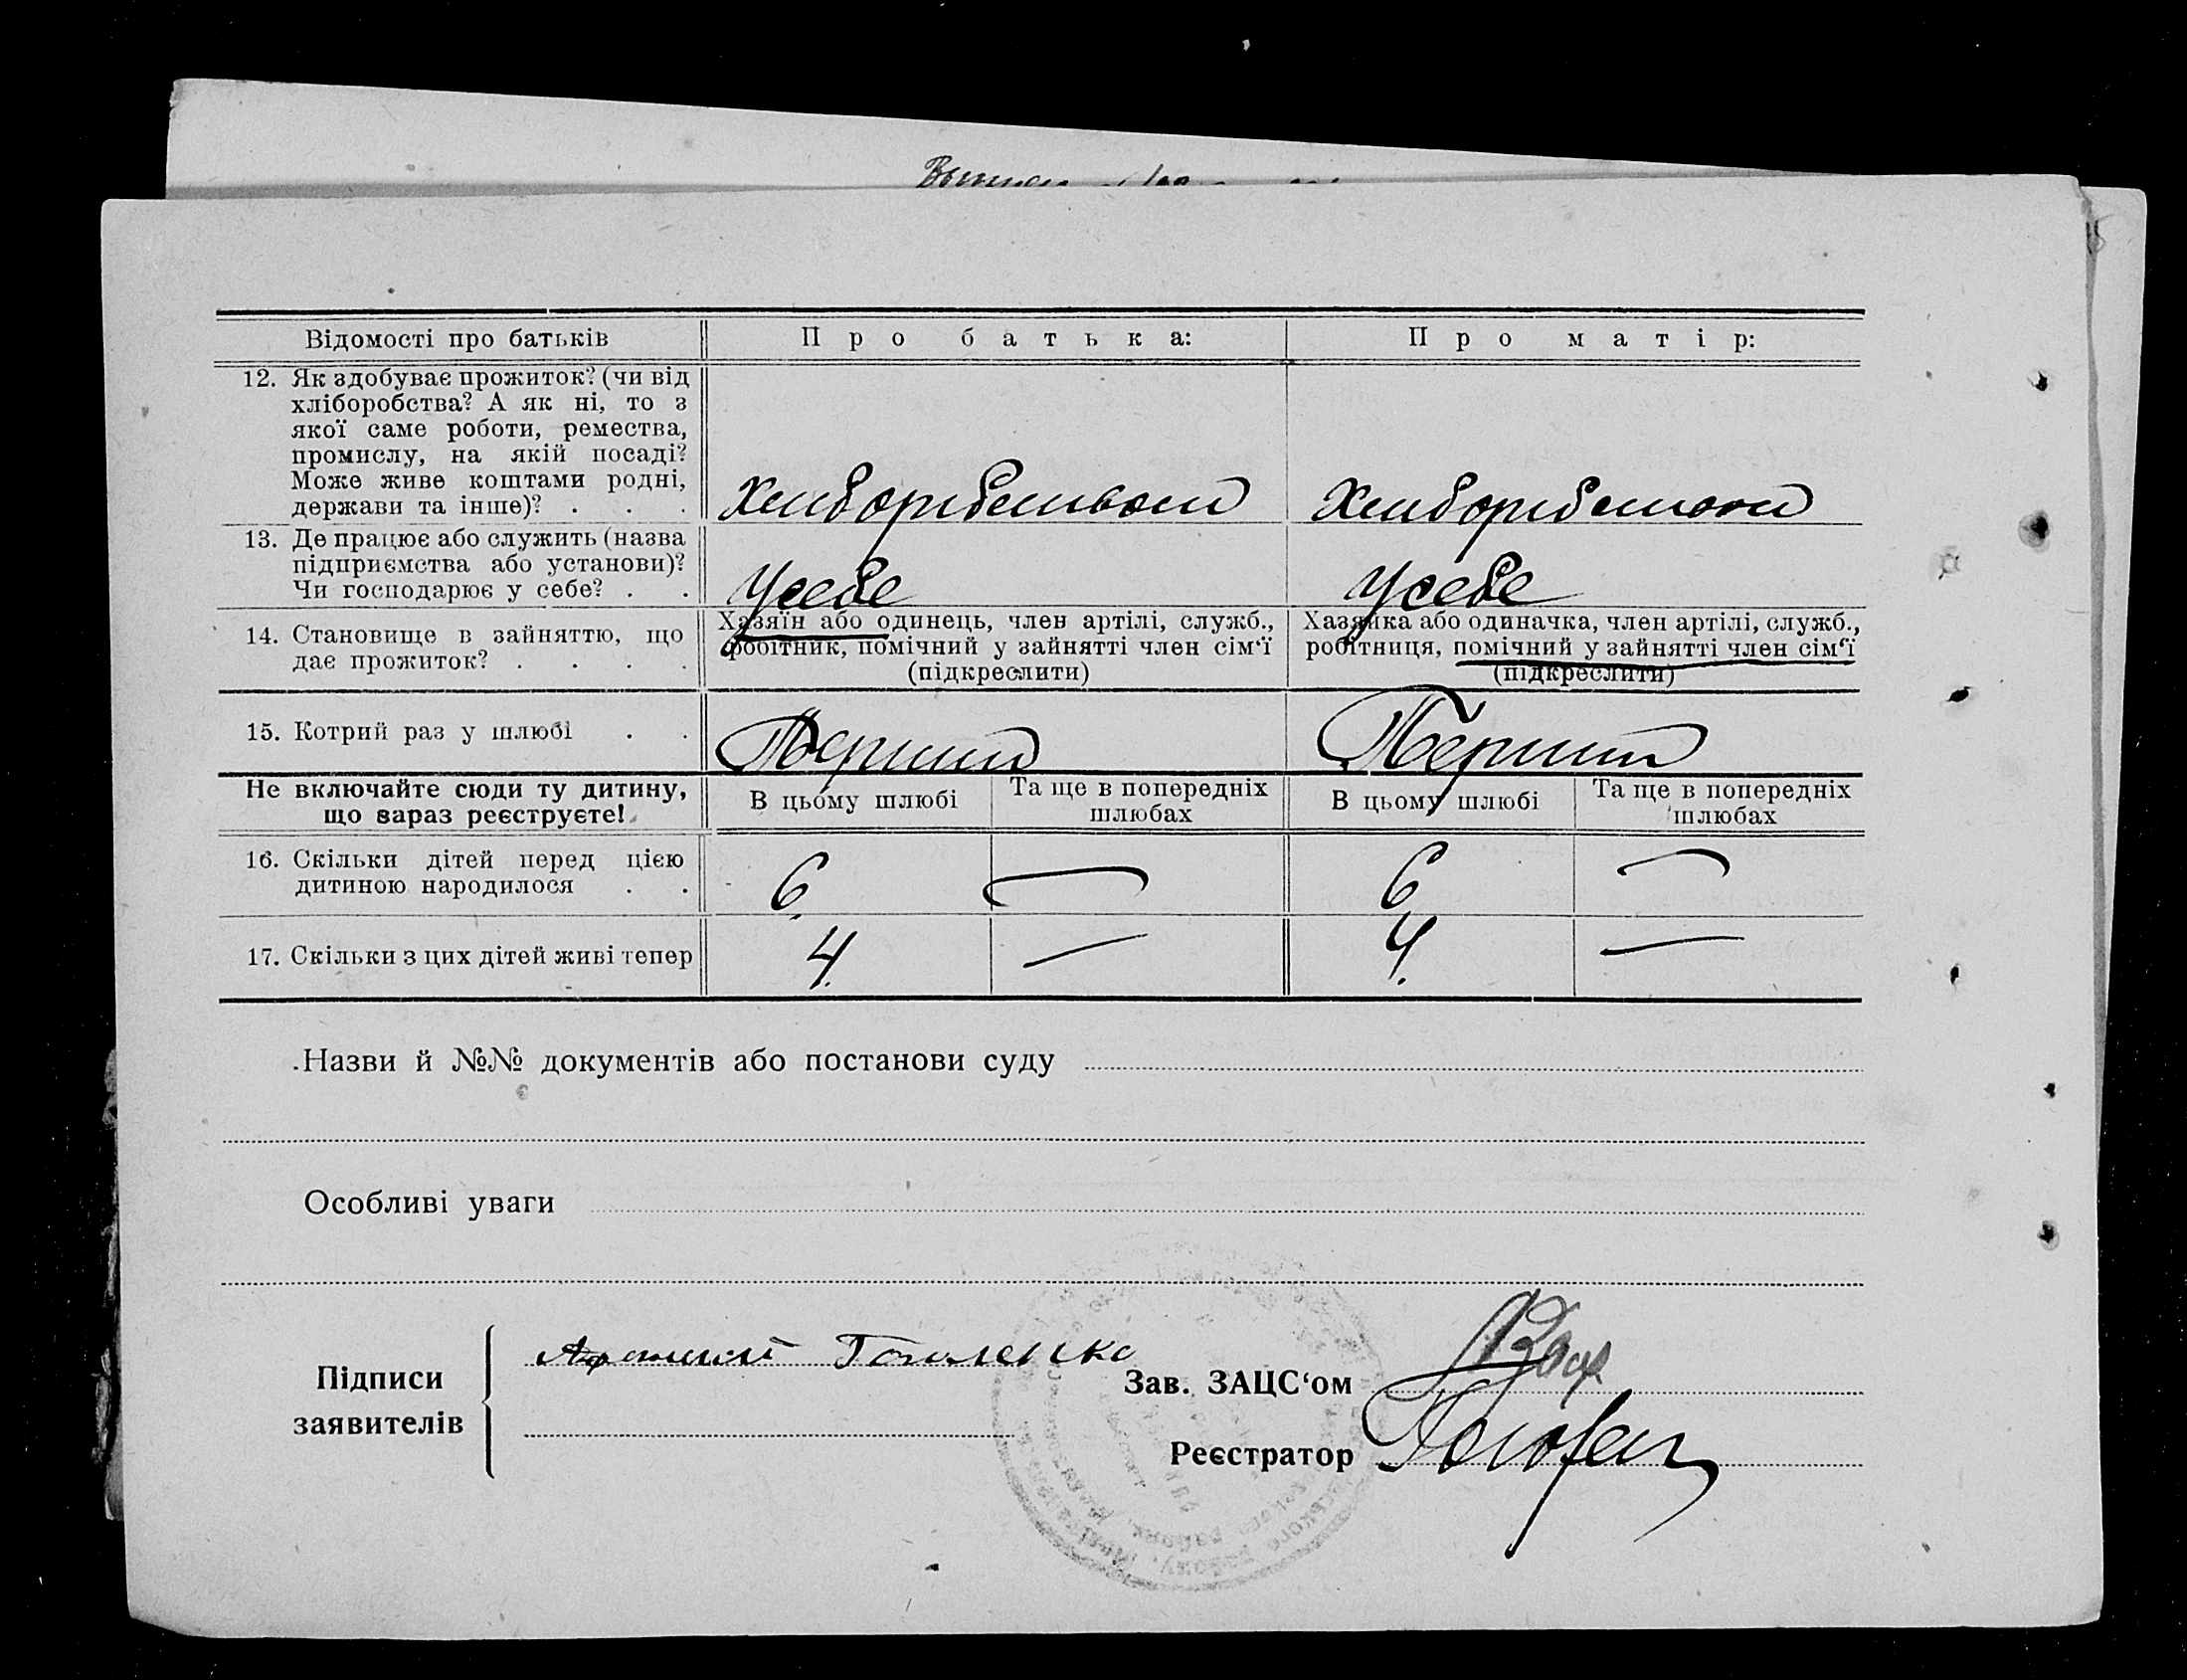 Відомості про батьків
Про батька:
Про матір:
12. Як здобуває прожиток? (чи від
хліборобства? А як ні, то з
якої саме роботи, ремества,
промислу, на якій посаді?
Може живе коштами родні,
держави та інше)? . . .
Хлиборибством
Хлиборибством
13. Де працює або служить (назва
підприємства або установи)?
Чи господарює у себе? . .
Усебе
Усебе
14. Становище в зайняттю, що
дає прожиток? . . . .
Хазяїн або одинець, член артілі, служб.,
робітник, помічний у зайнятті член сім'ї
(підкреслити)
Хазяйка або одиначка, член артілі, служб.,
робітниця, помічний у зайнятті член сім'ї
(підкреслити)
15. Котрий раз у шлюбі . .
Перший
Перший
Не включайте сюди ту дитину,
що зараз реєструєте!
В цьому шлюбі
Та ще в попередніх
шлюбах
В цьому шлюбі
Та ще в попередніх
шлюбах
16. Скільки дітей перед цією
дитиною народилося . .
6
—
6
—
17. Скільки з цих дітей живі тепер
4.
—
4.
—
Назви й №№ документів або постанови суду
Особливі уваги
Підписи
заявителів
Зав. ЗАЦС'ом
Реєстратор